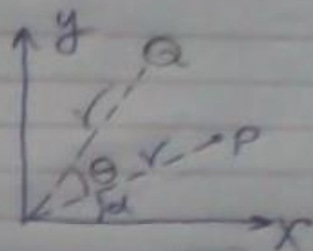 y
Q
r
θ r P
α
x